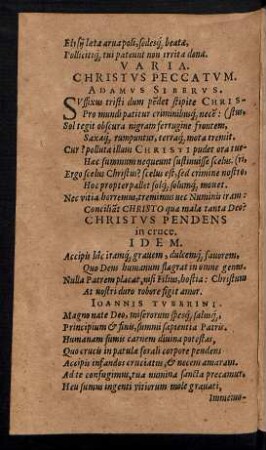 Elysij læta arua poli, sedesq́; beatæ,
Pollicitiq́; tui pateant non irrita dona.
VARIA.
CHRISTVS PECCATVM.
ADAMVS SIBERVS.
SVffixus tristi dum pẽdet stipite CHRIS-
Pro mundi patitur criminibusq́; necẽ: (stus,
Sol tegit obscura nigram ferrugine frontem,
Saxaq́; rumpuntur, terraq́; mota tremit.
Cur? polluta illum CHRISTI pudet ora tue-
Hæc summum nequeunt sustinuisse scelus. (ri,
Ergo scelus Christus? scelus est, sed crimine nostro,
Hoc propter pallet solq́; solumq́; mouet.
Nec vitia horremus, tremimus nec Numinis iram:
Conciliẽt CHRISTO qua mala tanta Deo?
CHRISTVS PENDENS
in cruce.
IDEM.
Accipis hîc iramq́; grauem, dulcemq́; fauorem,
Quo Deus humanum flagrat in omne genus.
Nulla Patrem placat, nisi Filius, hostia: Christum
At nostri duro robore figit amor.
IOANNIS TVBERINI.
Magno nate Deo, miserorum spesq́; salusq́;,
Principium & finis, summi sapientia Patris.
Humanam sumis carnem diuina potestas,
Quo crucis in patulæ ferali corpore pendens
Accipis infandos cruciatus, & necem amaram.
Ad te confugimus, tua numina sancta precamur,
Heu sumus ingenti vitiorum mole grauati,
Innictus-